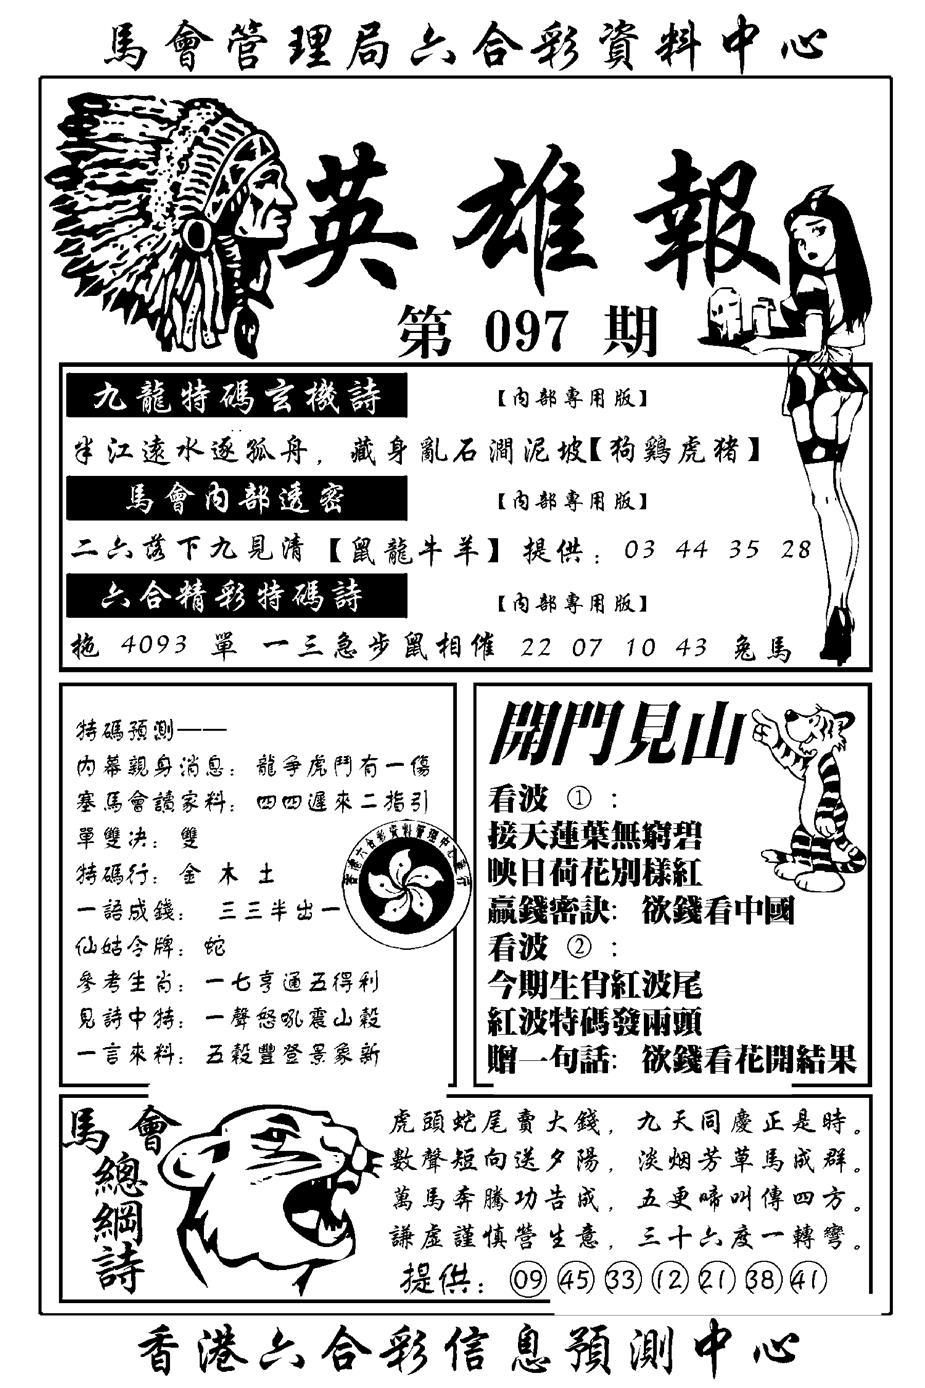 馬會管理局六合彩資料中心
英雄報
第 097 期
九龍特碼玄機詩 【內部專用版】
半江遠水逐孤舟，藏身亂石澗泥坡【狗鷄虎猪】
馬會內部透密 【內部專用版】
二六落下九見清【鼠龍牛羊】提供：03 44 35 28
六合精彩特碼詩 【內部專用版】
拖 4093 單 一三急步鼠相催 22 07 10 43 兔馬
特碼預測——
內幕親身消息：龍爭虎鬥有一傷
塞馬會讀家料：四四遲來二指引
單雙决：雙
特碼行：金 木 土
一語成錢： 三三半出一
仙姑令牌：蛇
參考生肖：一七亨通五得利
見詩中特：一聲怒吼震山穀
一言來料：五穀豐登景象新
香港六合彩資料管理中心發行
開門見山
看波 ①：
接天蓮葉無窮碧
映日荷花別樣紅
贏錢密訣：欲錢看中國
看波 ②：
今期生肖紅波尾
紅波特碼發兩頭
贈一句話：欲錢看花開結果
馬會
總綱詩
虎頭蛇尾賣大錢，九天同慶正是時。
數聲短向送夕陽，淡烟芳草馬成群。
萬馬奔騰功告成，五更啼叫傳四方。
謙虛謹慎營生意，三十六度一轉彎。
提供：09 45 33 12 21 38 41
香港六合彩信息預測中心